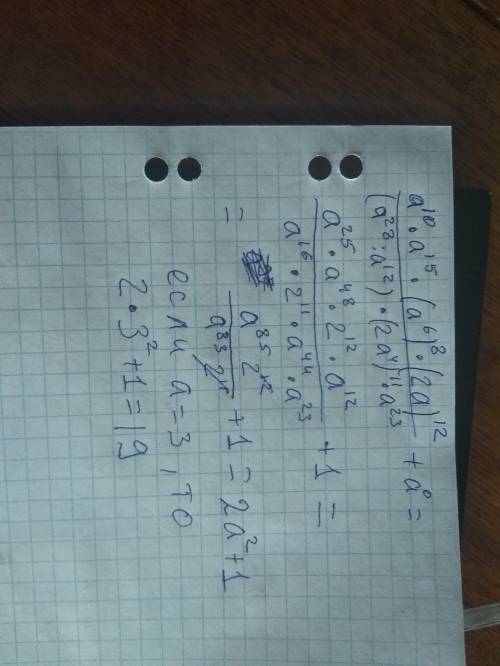 a¹⁰ · a¹⁵ · (a⁶)⁸ · (2a)¹² / (a²⁸ : a¹²) · (2a⁴)¹¹ · a²³ + a⁰ =
a²⁵ · a⁴⁸ · 2¹² · a¹² / a¹⁶ · 2¹¹ · a⁴⁴ · a²³ + 1 =
= a⁸⁵ 2¹² / a⁸³ 2¹¹ + 1 = 2a² + 1
если a = 3, то
2 · 3² + 1 = 19